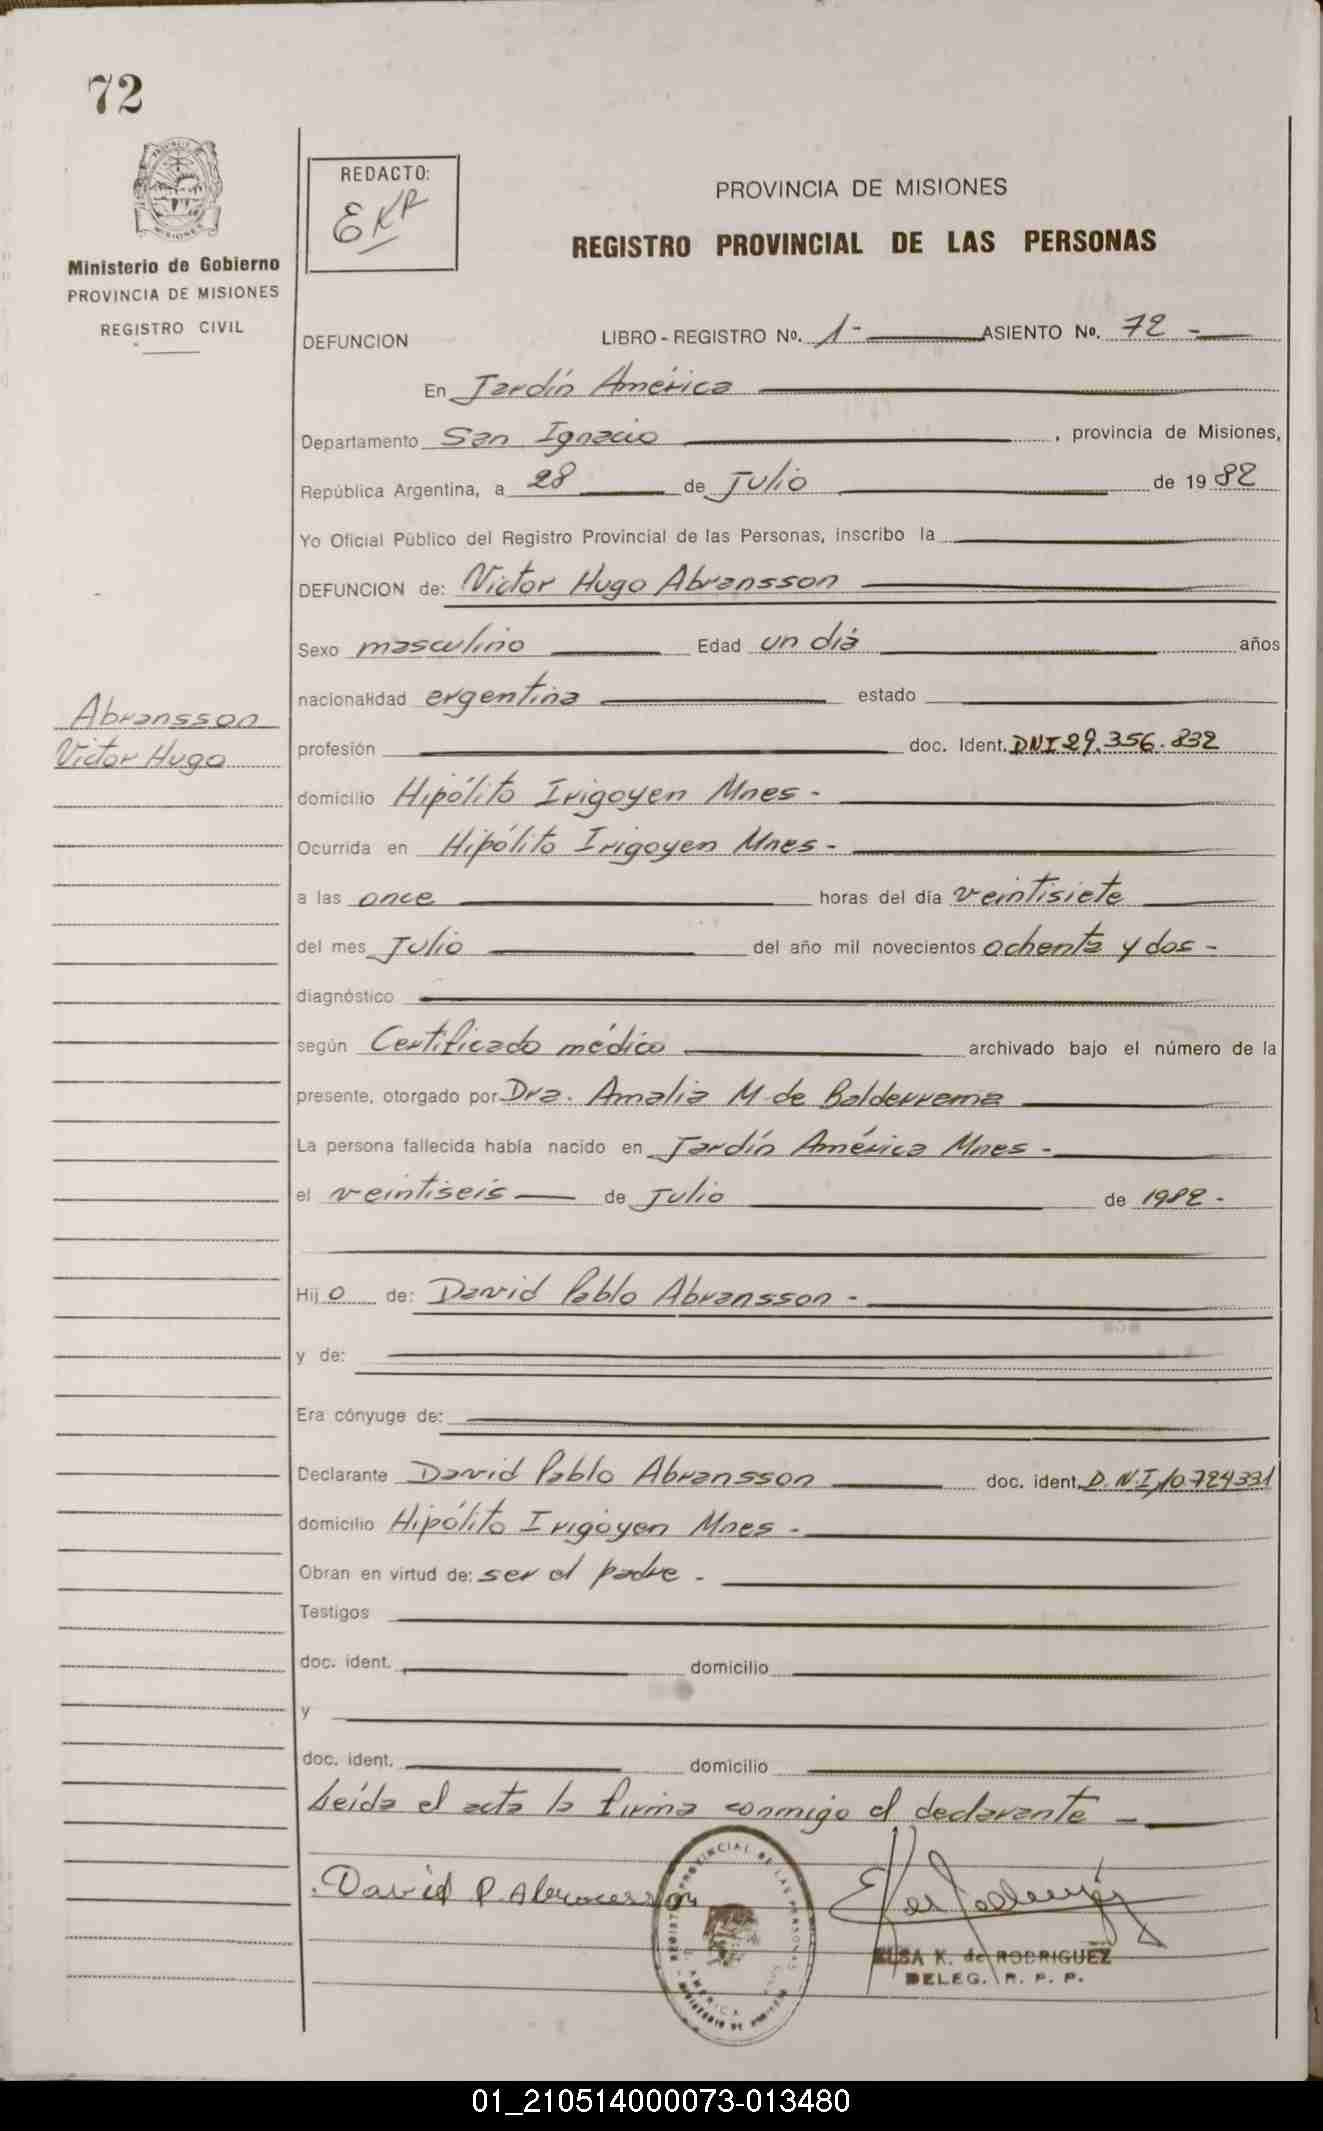 72
PROVINCIA DE MISIONES
Ministerio de Gobierno
PROVINCIA DE MISIONES
REGISTRO CIVIL
REDACTO:
EKR
PROVINCIA DE MISIONES
REGISTRO PROVINCIAL DE LAS PERSONAS
DEFUNCION LIBRO - REGISTRO No. 1- ASIENTO No. 72 -
En Jardín América
Departamento San Ignacio , provincia de Misiones,
República Argentina, a 28 de Julio de 1982
Yo Oficial Público del Registro Provincial de las Personas, inscribo la
DEFUNCION de: Victor Hugo Abransson
Sexo masculino Edad un día años
nacionalidad argentina estado
Abransson
Victor Hugo
profesión doc. Ident. DNI 29.356.832
domicilio Hipólito Irigoyen Mnes -
Ocurrida en Hipólito Irigoyen Mnes -
a las once horas del día veintisiete
del mes Julio del año mil novecientos ochenta y dos -
diagnóstico
según Certificado médico archivado bajo el número de la
presente, otorgado por Dra. Amalia M. de Balderrama
La persona fallecida había nacido en Jardín América Mnes -
el veintiseis de Julio de 1982 -
Hij o de: David Pablo Abransson -
y de:
Era cónyuge de:
Declarante David Pablo Abransson doc. ident. D.N.I. 10.724331
domicilio Hipólito Irigoyen Mnes -
Obran en virtud de: ser el padre -
Testigos
doc. ident. domicilio
y
doc. ident. domicilio
Leída el acta la firma conmigo el declarante -
David P. Abransson
REGISTRO PROVINCIAL DE LAS PERSONAS
ELSA K. de RODRIGUEZ
DELEG. R. P. P.
01_210514000073-013480